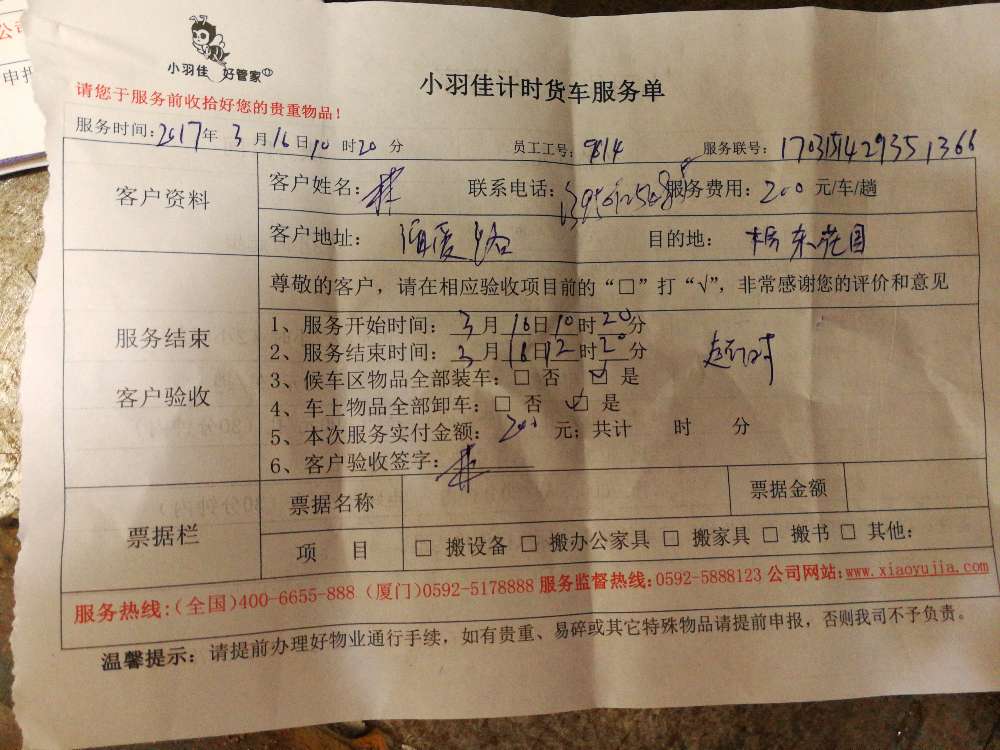 小羽佳 好管家
小羽佳计时货车服务单
请您于服务前收拾好您的贵重物品！
服务时间：2017年 3 月 16 日 10 时 20 分 员工工号：9814 服务联号：
客户资料
客户姓名：林 联系电话： 服务费用：200 元/车/趟
客户地址： 目的地：
尊敬的客户，请在相应验收项目前的“□”打“√”，非常感谢您的评价和意见
服务结束
客户验收
1、服务开始时间：3 月 16 日 10 时 20 分
2、服务结束时间：3 月 16 日 12 时 20 分
3、候车区物品全部装车：□ 否 ☑ 是
4、车上物品全部卸车：□ 否 ☑ 是
5、本次服务实付金额：200 元；共计 时 分
6、客户验收签字：林
票据栏
票据名称 票据金额
项 目 □ 搬设备 □ 搬办公家具 □ 搬家具 □ 搬书 □ 其他：
服务热线：（全国）400-6655-888（厦门）0592-5178888 服务监督热线：0592-5888123 公司网站：www.xiaoyujia.com
温馨提示：请提前办理好物业通行手续，如有贵重、易碎或其它特殊物品请提前申报，否则我司不予负责。